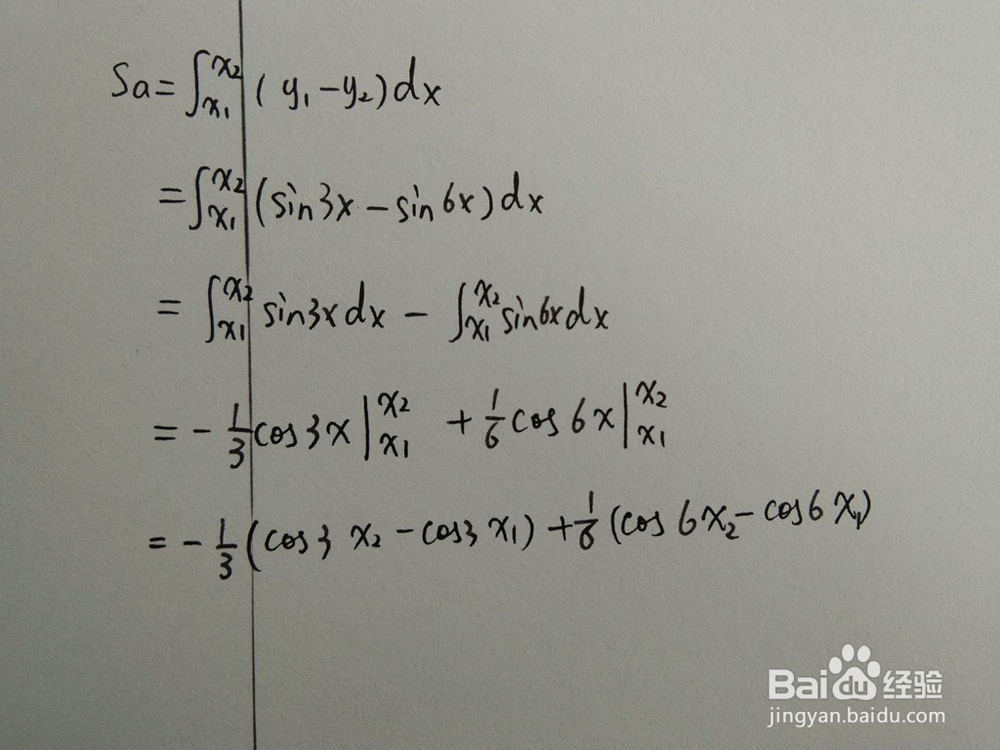 Sa=∫_{x₁}^{x₂}(y₁-y₂)dx
=∫_{x₁}^{x₂}(sin3x-sin6x)dx
=∫_{x₁}^{x₂}sin3xdx-∫_{x₁}^{x₂}sin6xdx
=-1/3cos3x|_{x₁}^{x₂}+1/6cos6x|_{x₁}^{x₂}
=-1/3(cos3x₂-cos3x₁)+1/6(cos6x₂-cos6x₁)
Baidu经验
jingyan.baidu.com